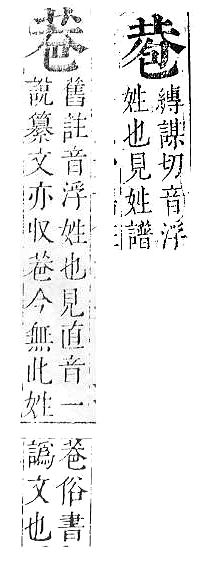 縛謀切音浮
姓也見姓譜
舊註音浮姓也見直音一
說纂文亦収今無此姓
俗書
譌文也